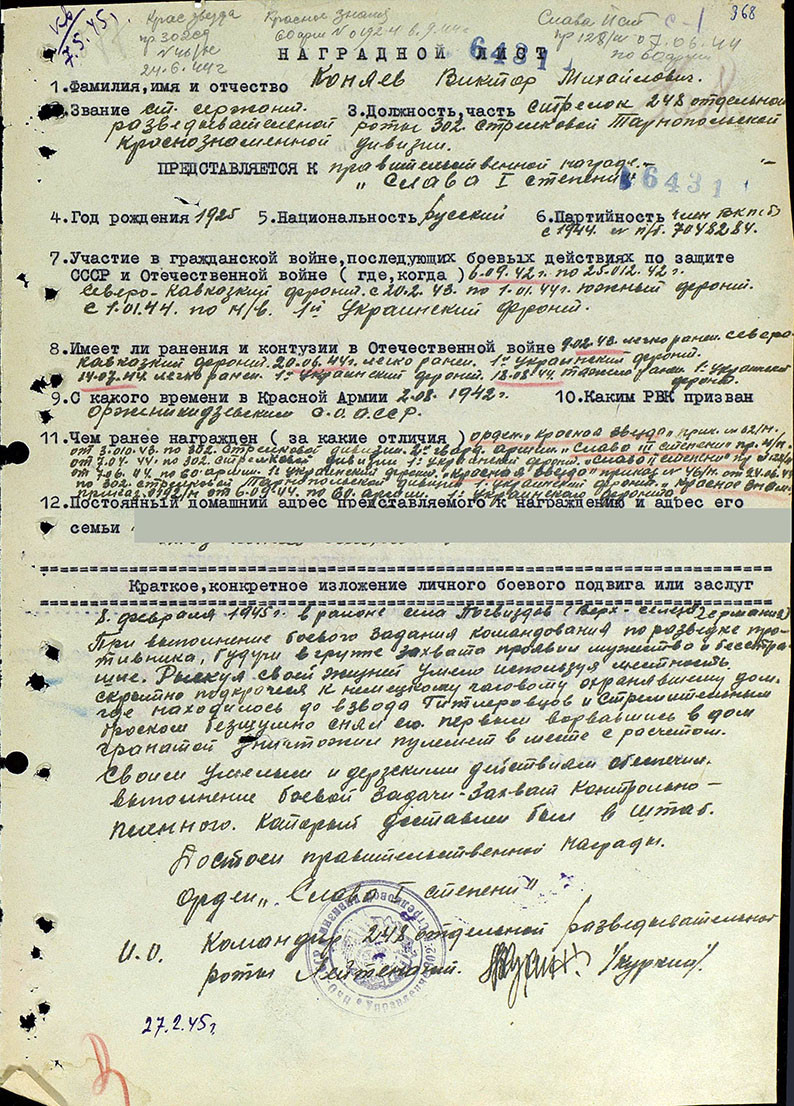 7.5.45г.
Крас звезда
пр 302сд
№ 46/н
24.6.44г
Красное знамя
60арм № 0192 н 6.9.44г
Слава IIст
пр 128/н 07.06.44
по 60арм
с-1
368
НАГРАДНОЙ ЛИСТ
6431
1.Фамилия,имя и отчество Коняев Виктор Михайлович.
2.Звание ст. сержант. 3.Должность,часть стрелок 248 отдельной
разведывательной роты 302. стрелковой Тарнопольской
Краснознаменной дивизии.
ПРЕДСТАВЛЯЕТСЯ К правительственной награде.
"Слава I степени"
6431
4.Год рождения 1925 5.Национальность русский 6.Партийность член ВКП(б)
с 1944. № п/б. 7048284.
7.Участие в гражданской войне,последующих боевых действиях по защите
СССР и Отечественной войне ( где,когда ) 6.09.42г. по 25.012.42г.
Северо-Кавказкий фронт. с 20.2.43. по 1.01.44г. Южный фронт.
с 1.01.44. по н/в. 1й Украинский фронт.
8.Имеет ли ранения и контузии в Отечественной войне 9.02.43. легко ранен. Северо-
Кавказкий фронт. 20.06.44г. легко ранен. 1й Украинский фронт.
14.03.44. легко ранен. 1й Украинский фронт. 18.08.44. тяжело ранен. 1й Украинский
фронт.
9.С какого времени в Красной Армии 2.08.1942г. 10.Каким РВК призван
Орженикидзевским С.О.АССР.
11.Чем ранее награжден ( за какие отличия ) орден "Красная звезда" прик.
от 3.010.43. по 302. стрелковой дивизии. 2й гвард. армии. "Слава III степени" пр.
от 7.04.44. по 302. стрелковой дивизии 1й украинский фронт. "Слава II степени" пр №128/н
от 7.06.44. по 60 армии. 1й украинский фронт. "Красная звезда" приказ № 46/н. от 24.06.44
по 302. стрелковой Тарнопольской дивизии 1. украинский фронт. "Красное знам.
приказ.0192/н от 6.09.44. по 60. армии. 1й. Украинского фронта
12.Постоянный домашний адрес представляемого к награждению и адрес его
семьи
Краткое,конкретное изложение личного боевого подвига или заслуг
8. февраля 1945г. в районе села Погвиздов (Верх-Силезь Германия)
При выполнение боевого задания командования по разведке про-
тивника, будучи в группе захвата проявил мужество и бесстра-
шие. Рискуя своей жизней умело используя местность.
скрытно подкрочся к немецкому часовому охранявшему дом,
где находилось до взвода Гитлеровцов и стремительным
броском безшумно снял его. первым ворвавшись в дом
гранатой уничтожил пулемет в месте с расчетом.
Своим умелым и дерзскими действиям обеспечил.
выполнение боевой задачи-захват контрольно-
пленного. Каторый доставлен был в штаб.
Достоен правительственной награды.
Орден "Слава I степени"
И.О. Командир 248 отдельной разведывательной
роты Лейтенант. /Куркин/.
27.2.45г.